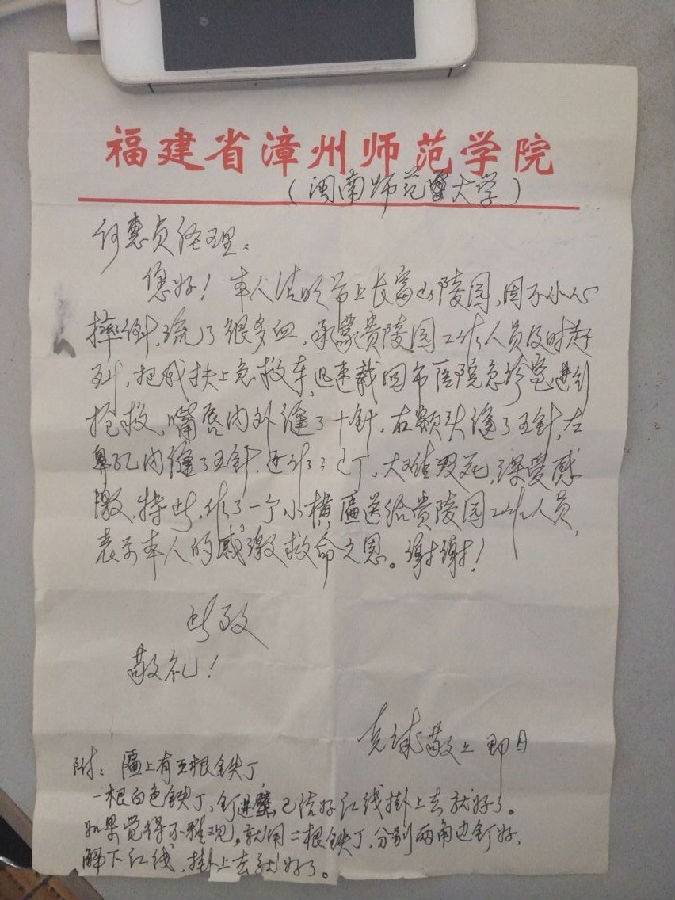 福建省漳州师范学院
(闽南师范大学)
何惠贞经理:
您好!本人清明节上长富山陵园,因不小心
摔倒流了很多血,承蒙贵陵园工作人员及时赶
到,把我扶上急救车,迅速载回市医院急诊室进行
抢救,嘴唇内外缝了十针,右额头缝了五针,左
鼻孔内缝了五针,还诊了已丁,大难毁死,深爱感
激,特此,作了一个小横匾送给贵陵园工作人员,
表示本人的感激救命之恩。谢谢!
此致
敬礼!
敬上 即日
附:匾上有三根铁丁
一根白色铁丁,钉进壁已结好红线掛上去就好了。
如果觉得不雅观,就用二根铁丁,分别两角边钉好,
解下红线,掛上去就好了。